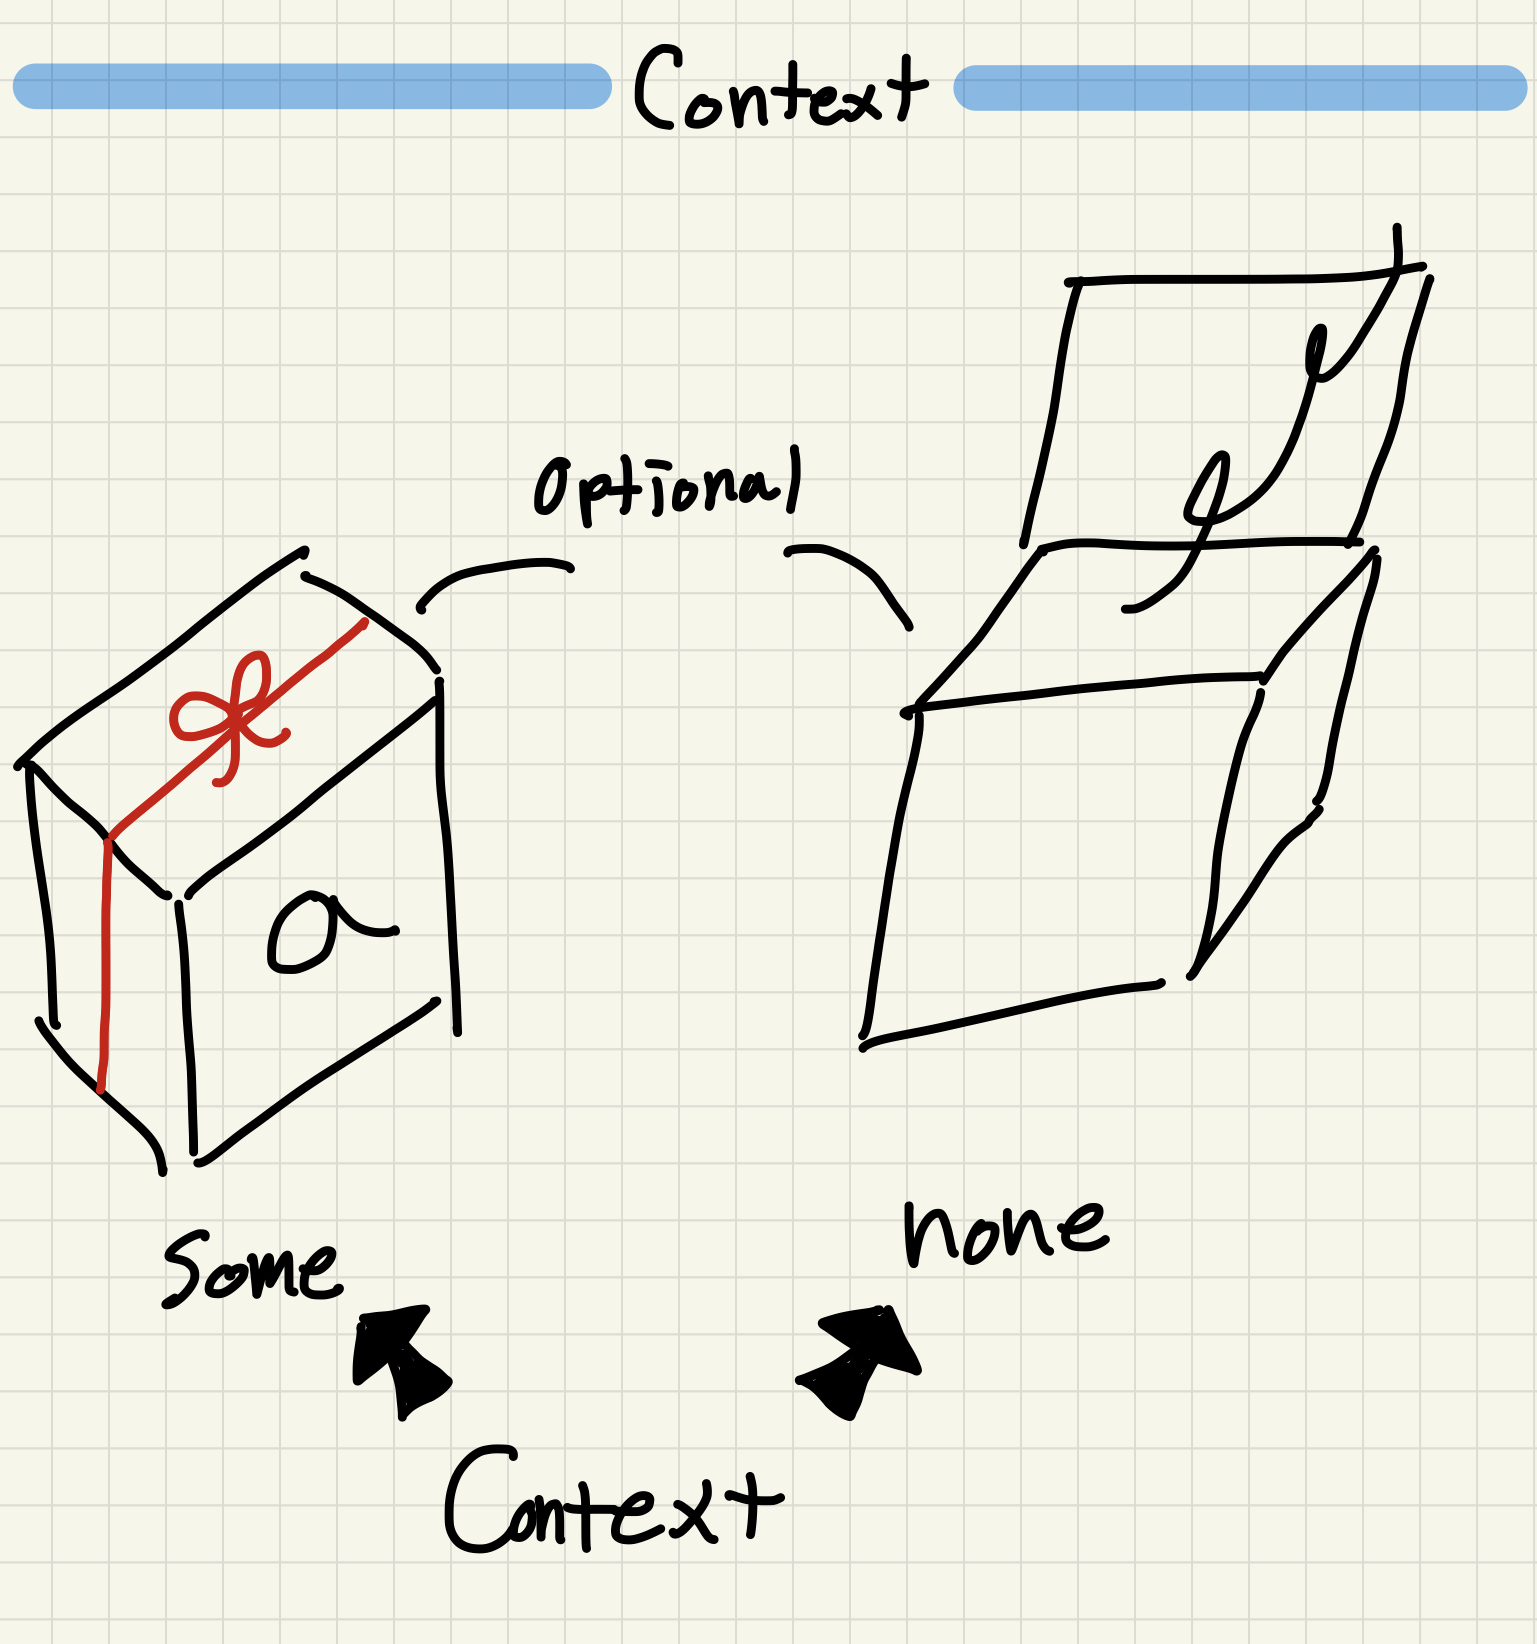 Context
optional
a
Some
none
Context